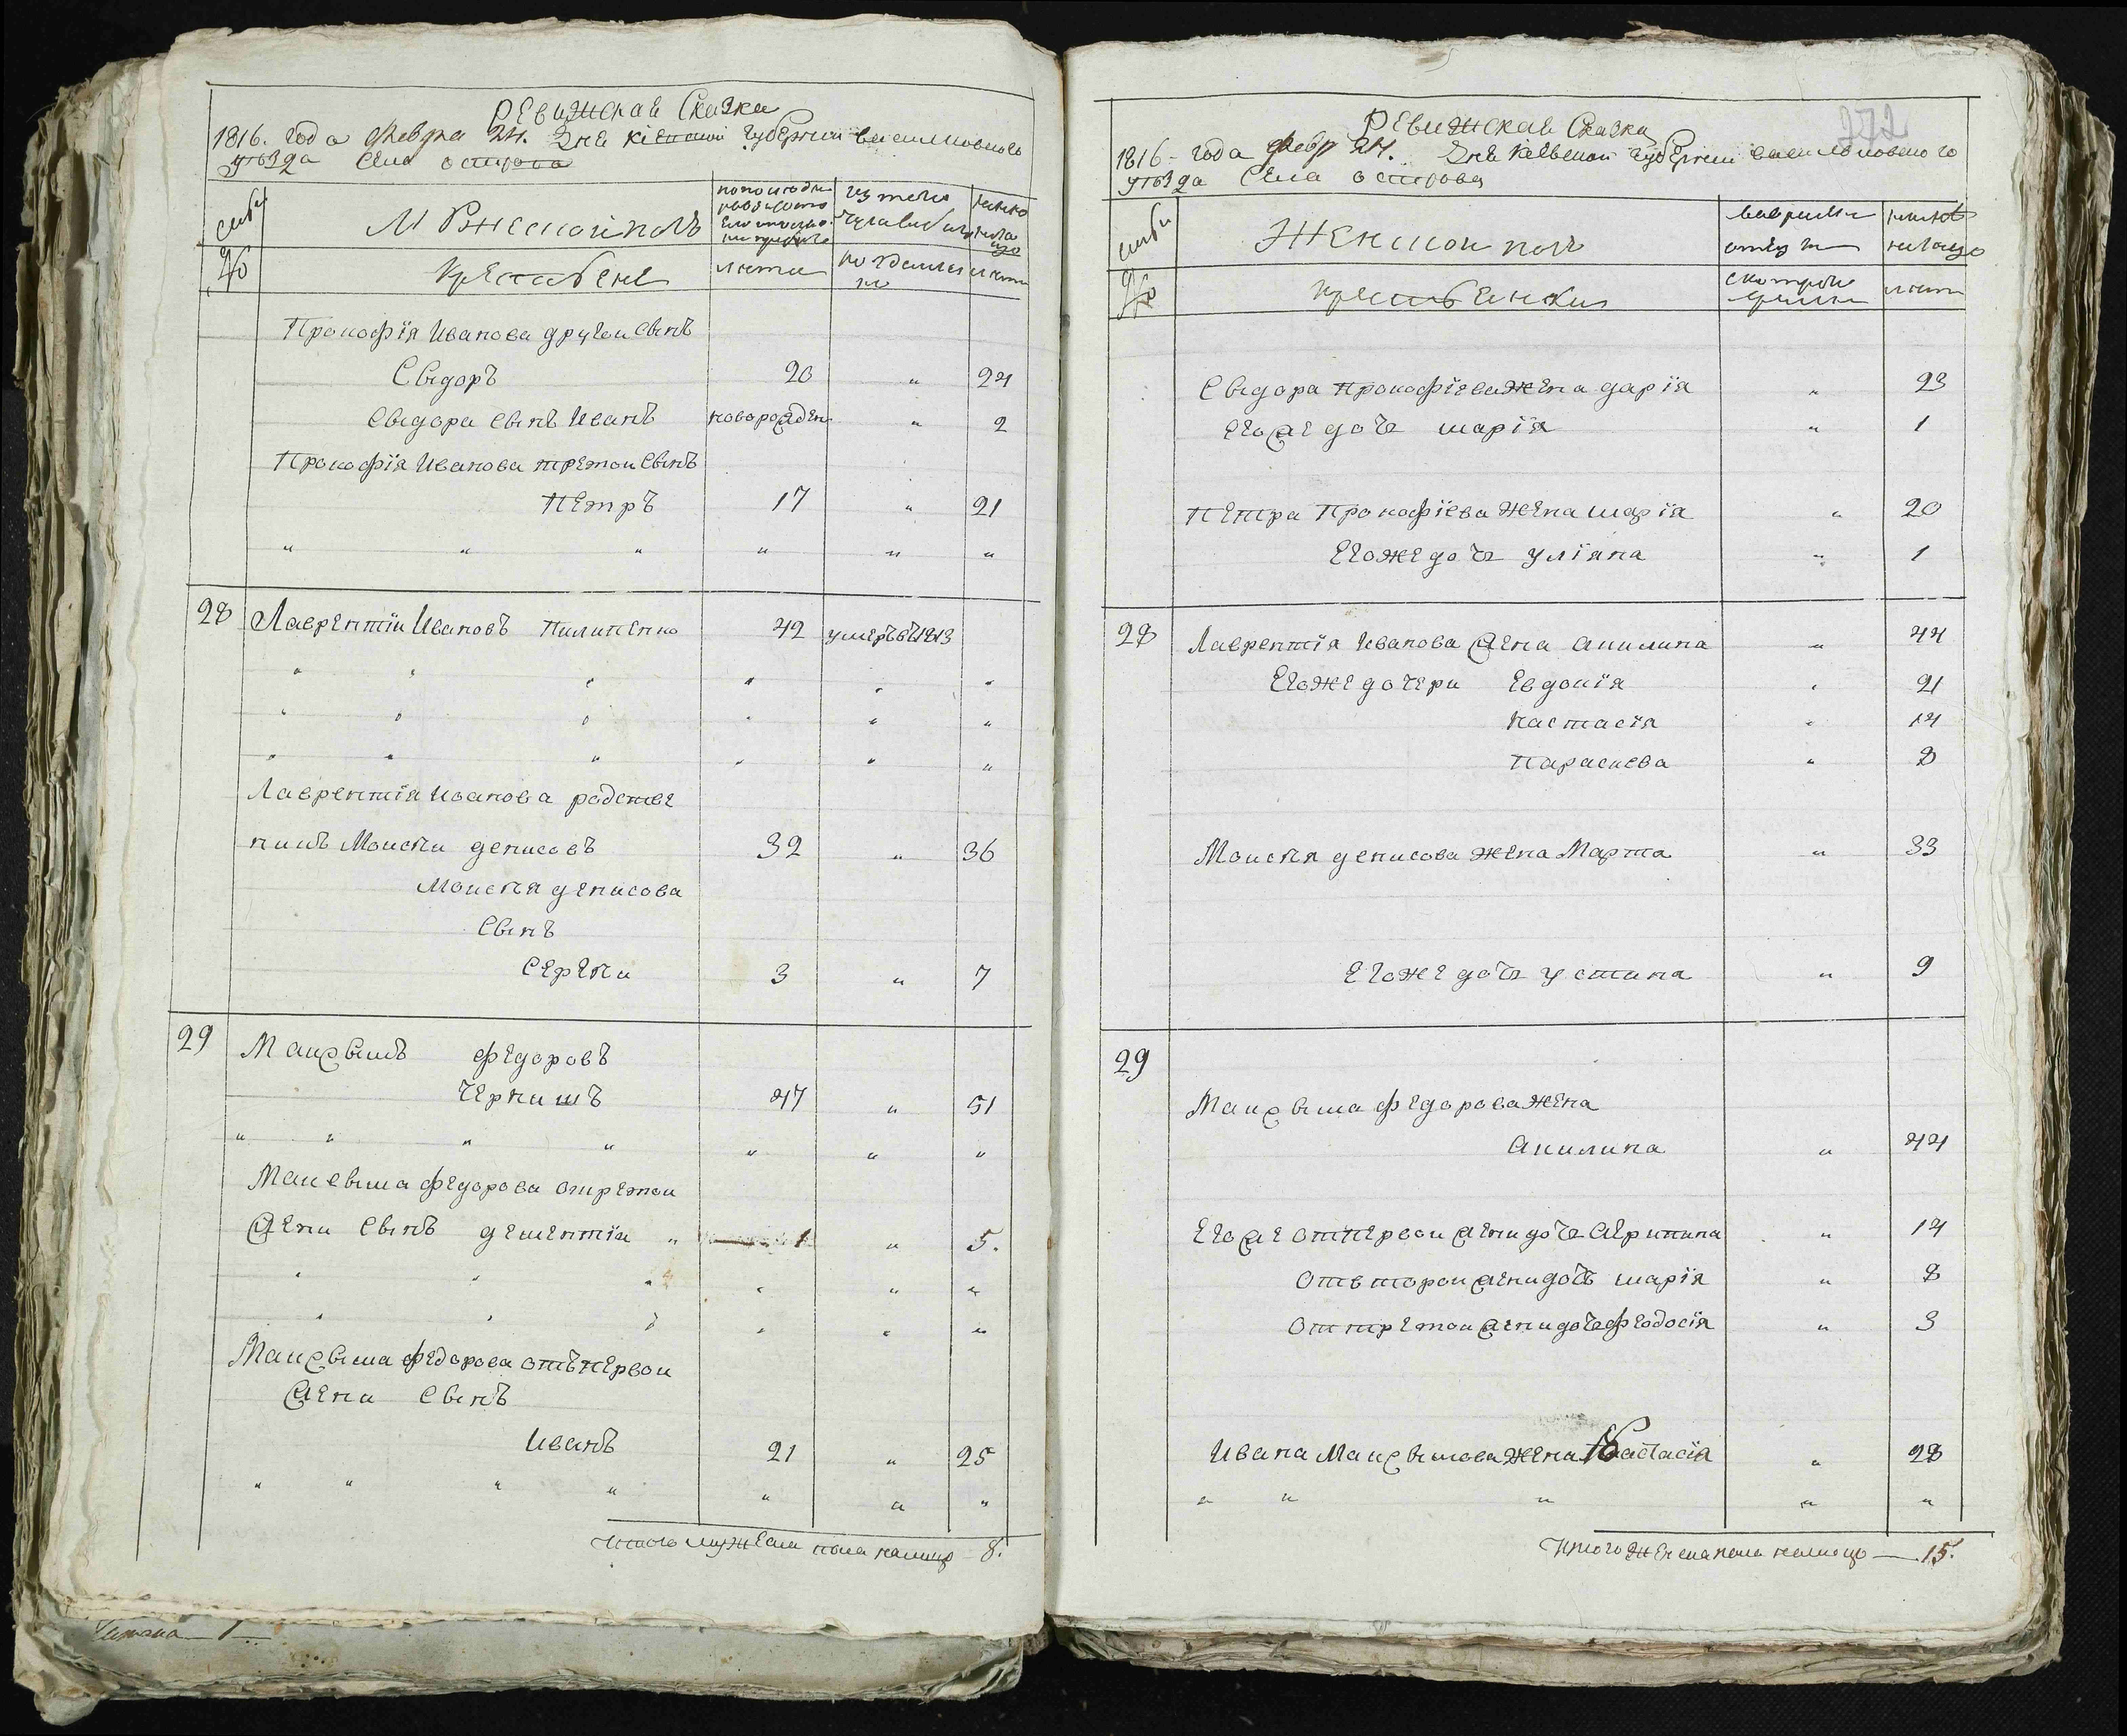 Ревижская Сказка
1816. года февра 24. дня кіевской губернии василковского
уѣзда Села острова
семьи
Мужеской полъ
по последней ревизіи состояло
изъ того числа выбыло
ныне на лицо
№
крестьяне
лѣта
когда имянно
лѣта
Прокофія Иванова другои Сынъ
Сыдоръ 20 " 24
Сыдора Сынъ Иванъ новорожден " 2
Прокофія Иванова третои Сынъ
Петръ 17 " 21
" " " " " "
28 Лаврентіи Ивановъ Пилипенко 42 умеръ въ 1813
" " " " " "
" " " " " "
" " " " " "
Лаврентія Иванова родстве
никъ Моисѣи денисовъ 32 " 36
Моисѣя денисова
Сынъ
Сергѣи 3 " 7
29 Максымъ федоровъ
Чернишъ 47 " 51
" " " " " " "
Максыма федорова отретои
жени Сынъ дементіи " 1 " 5.
" " " " " "
" " " " " "
Максыма федорова отъ первои
жени Сынъ
Иванъ 21 " 25
" " " " " " "
Итого мужеска пола налицо 8.
272
Ревижская Сказка
1816 - года февр 24. дня Кіевской губернии василковского
уѣзда Села острова
семьи
Женской полъ
во времянной отлучке
ныне на лицо
№
крестьянки
с которого времени
лѣта
Сыдора Прокофіева жена дарія " 23
Его же дочь марія " 1
Петра Прокофіева жена марія " 20
Его же дочь уліяна " 1
28 Лаврентія Иванова жена акилина " 44
Его же дочери Евдокія " 21
настасія " 14
Параскева " 8
Моисѣя денисова жена Марта " 33
Его же дочь устина " 9
29
Максыма федорова жена
акилина " 44
Его же отпервои жени дочь агрипина " 14
Отвторои жени дочь марія " 8
От третои жени дочь феодосія " 3
Ивана Максымова жена Настасія " 28
" " " " "
Итого женска пола налицо — 15.